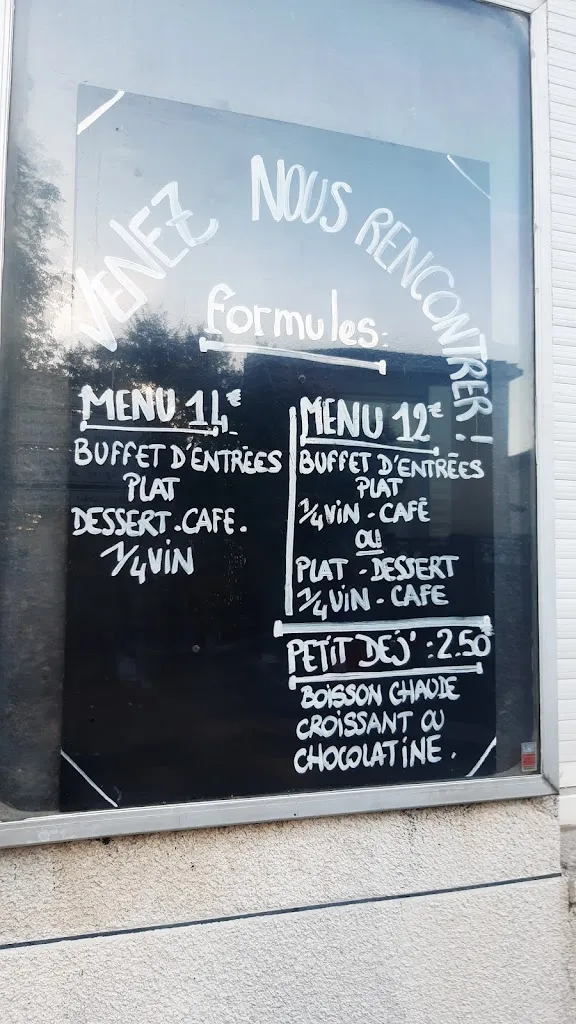 VENEZ NOUS RENCONTRER !
formules:
MENU 14€
BUFFET D'ENTRÉES
PLAT
DESSERT.CAFE.
1/4 VIN
MENU 12€
BUFFET D'ENTRÉES
PLAT
1/4 VIN - CAFÉ
OU
PLAT - DESSERT
1/4 VIN - CAFE
PETIT DEJ' : 2.50
BOISSON CHAUDE
CROISSANT OU
CHOCOLATINE.